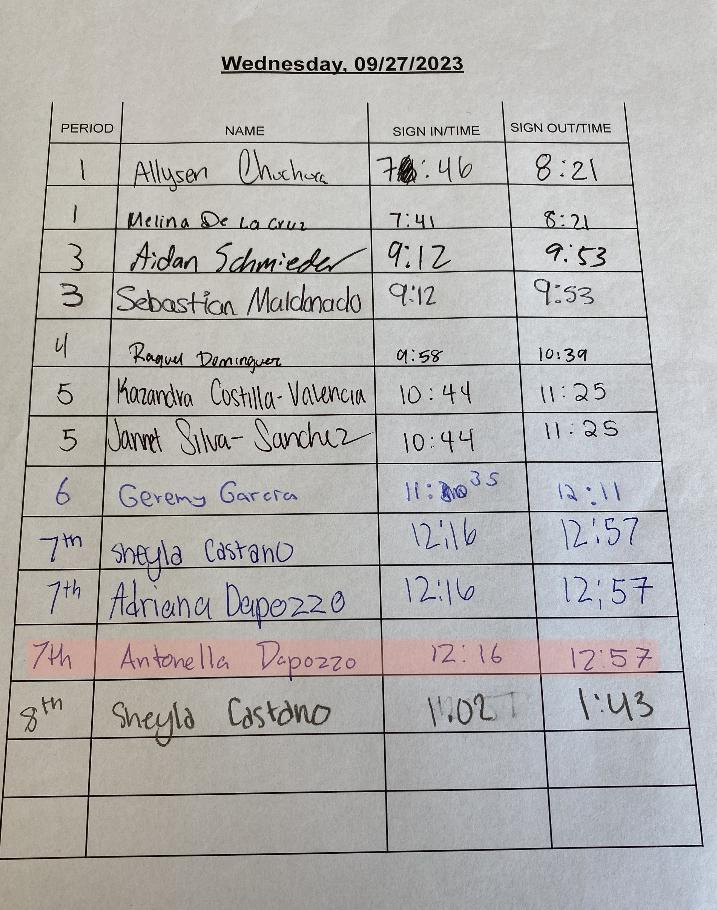 Wednesday, 09/27/2023
PERIOD NAME SIGN IN/TIME SIGN OUT/TIME
1 Allysen Chuchuca 7:46 8:21
1 Melina De La Cruz 7:41 8:21
3 Aidan Schmieder 9:12 9:53
3 Sebastian Maldonado 9:12 9:53
4 Raquel Dominguez 9:58 10:39
5 Kazandra Costilla-Valencia 10:44 11:25
5 Jannet Silva-Sanchez 10:44 11:25
6 Geremy Garcia 11:35 12:11
7th Sheyla Castano 12:16 12:57
7th Adriana Dapozzo 12:16 12:57
7th Antonella Dapozzo 12:16 12:57
8th Sheyla Castano 1:02 1:43